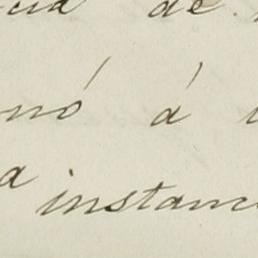 cia de
nó á
a instanc